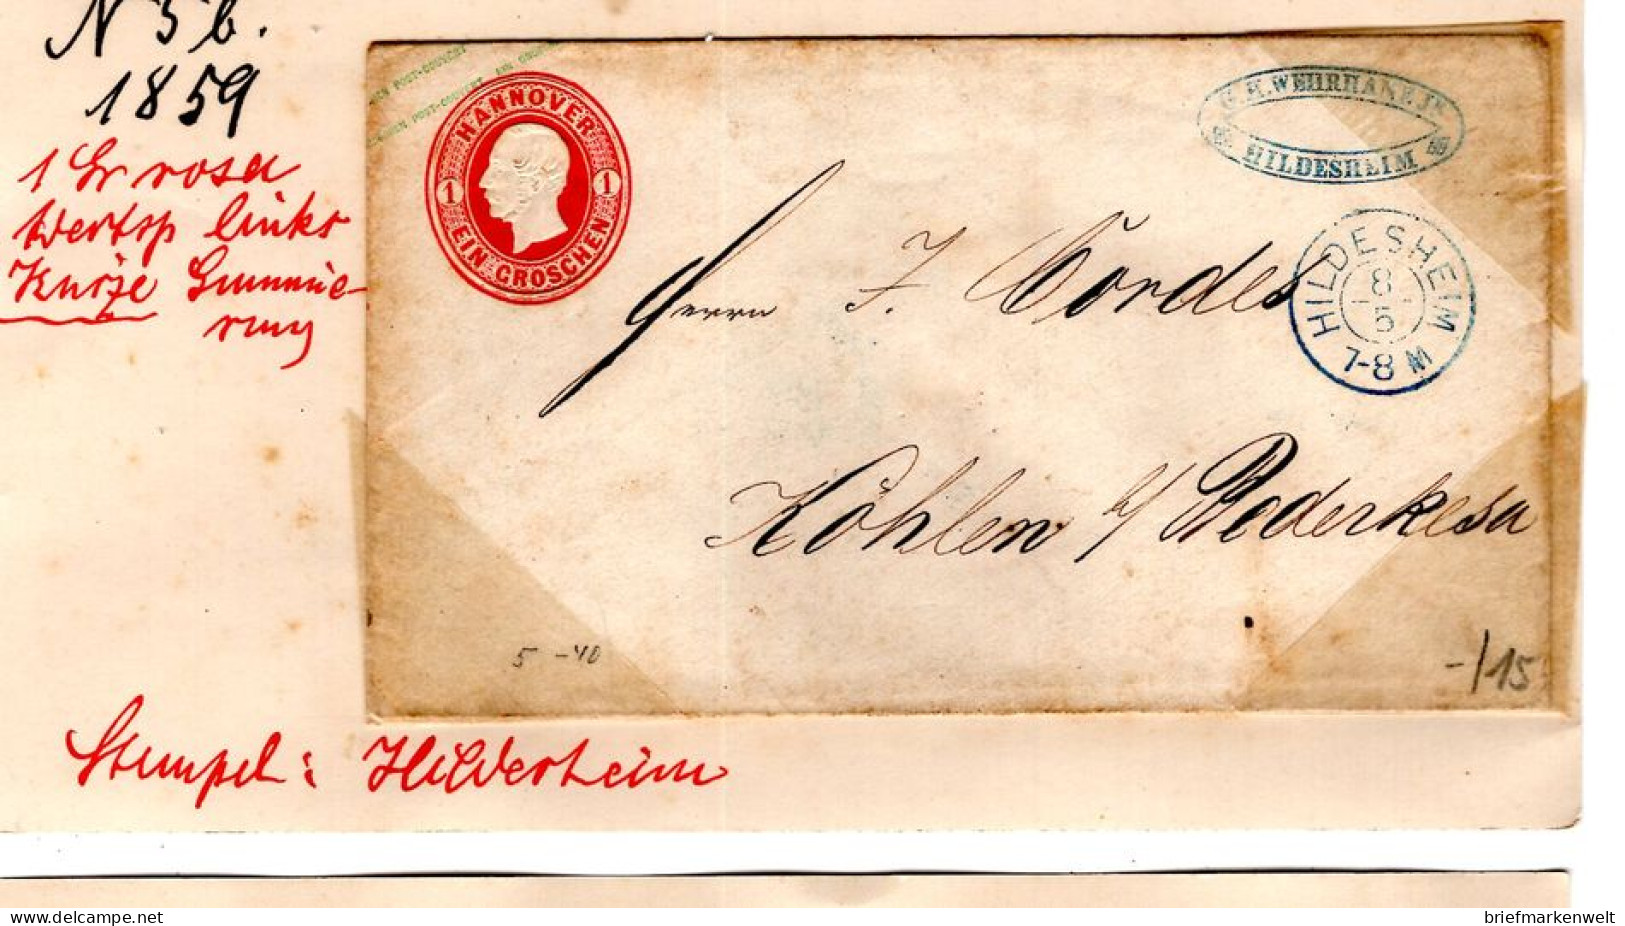 N 5 b.
1859
1 Gr rosa
Wertsp links
Kurze Gummie-
rung
POST-COUVERT. EIN GROSCHEN
POST-COUVERT
HANNOVER
1 1
EIN GROSCHEN
WEHRHANE JR
HILDESHEIM
HILDESHEIM
8
5
7-8 M
Herrn F. Cordes
Köhlen b/ Bederkesa
5 -40
-/15
Stempel: Hildesheim
briefmarkenwelt